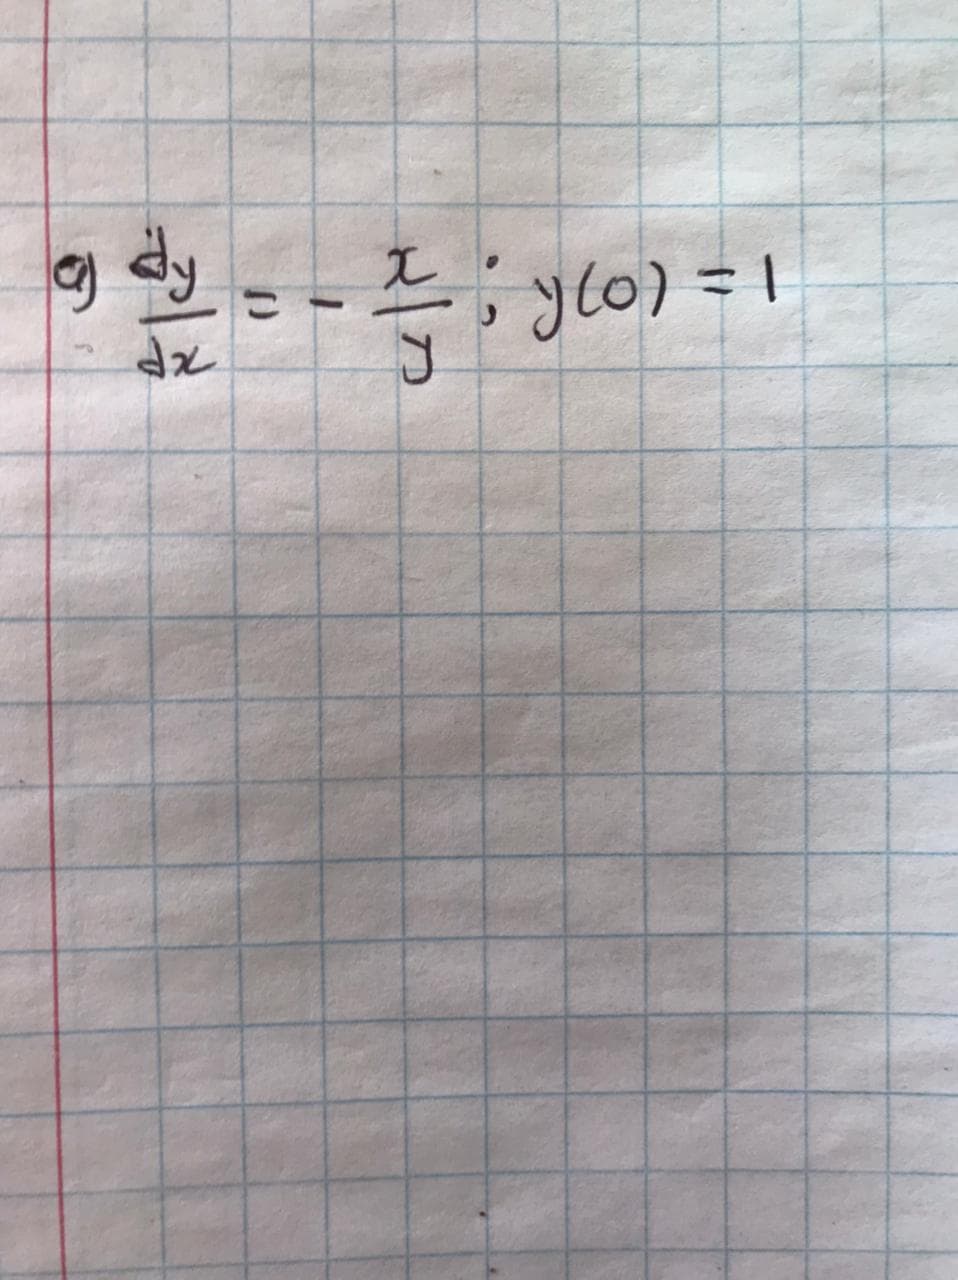 a) dy/dx = - x/y ; y(0) = 1